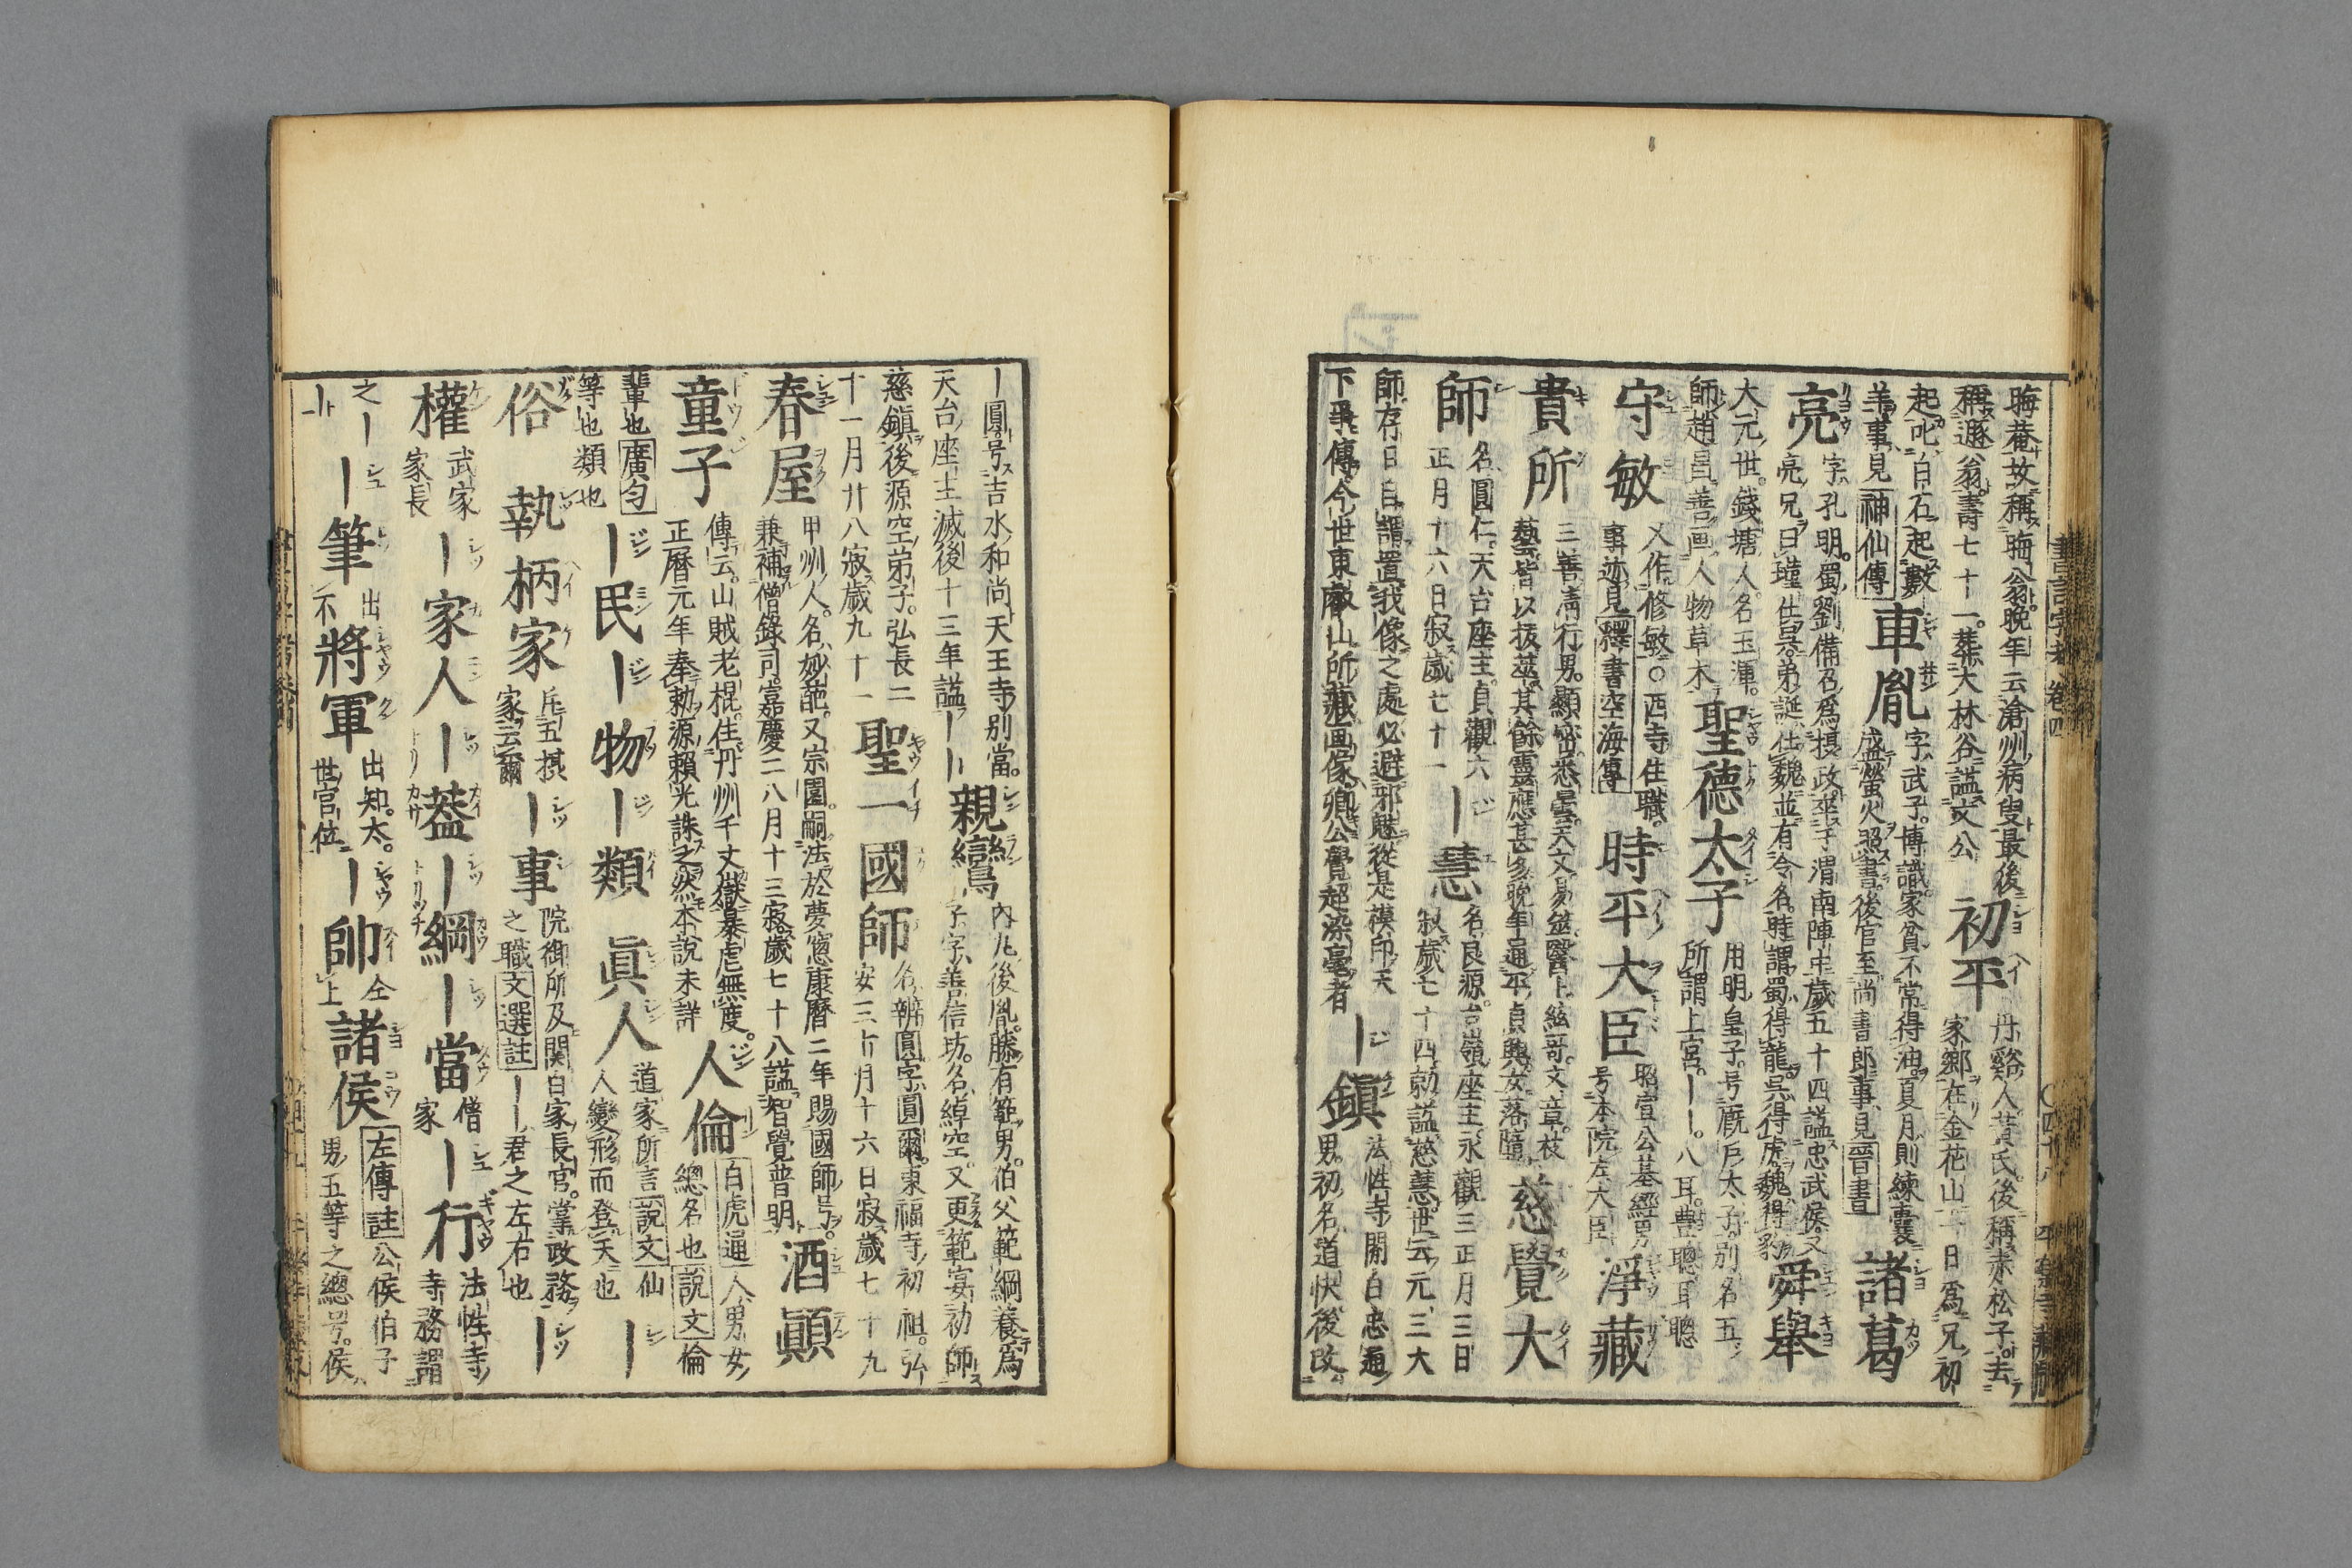 晦菴故稱晦翁晩年云滄州病叟最後
稱遯翁壽七十一葬大林谷謚文公
初平
丹谿人黄氏後稱赤松子去
家郷在金花山一日爲兄初
起叱白石起數
羊事見神仙傳
車胤
字武子博識家貧不常得油夏月則練囊
盛螢火照書後官至尚書郎事見晋書
諸葛
亮
字孔明蜀劉備召爲摂政卒于渭南陣中歳五十四謚忠武侯又
亮兄曰瑾仕呉弟誕仕魏並有令名時謂蜀得龍呉得虎魏得豹
舜舉
大元世錢塘人名玉渾
師趙昌善画人物草木
聖德太子
用明皇子号厩戸太子別名五
所謂上宮丨丨八耳豊聰耳聰
守敏
又作修敏○西寺住職
事迹見釋書空海傳
時平大臣
昭宣公基經男
号本院左大臣
淨藏
貴所
三善清行男顯密悉曇天文易筮醫卜絃哥文章枝
藝皆以拔萃其餘靈應甚多晩年通平貞興女落墮
慈覺大
師
名圓仁天台座主貞觀六
正月十六日寂歳七十一
丨慧
名良源台嶺座主永觀三正月三日
寂歳七十四勅謚慈慧世云元三大
師存日自謂置我像之處必避邪魅從是模印天
下事傳今世東敵山所藏画像卿公覺超染毫者
丨鎮
法性寺關白忠通
男初名道快後改
書言字考 卷四
丨圓号吉水和尚天王寺別當
天台座主滅後十三年謚丨丨
親鸞
内丸後胤藤有範男伯父範綱養爲
子字善信坊名綽空又更範宴初師
慈鎮後源空弟子弘長二
十一月廿八寂歳九十一
聖一國師
名辨圓字圓爾東福寺初祖弘
安三十月十六日寂歳七十九
春屋
甲州人名妙葩又宗園嗣法於夢窓康暦二年賜國師号
兼補僧錄司嘉慶二八月十三寂歳七十八謚智覺普明
酒顚
童子
傳云山賊老棍住丹州千丈嶽暴虐無度
正曆元年奉勅源賴光誅之然本說未詳
人倫
白虎通人男女
總名也說文倫
輩也廣匀
等也類也
丨民
丨物
丨類
眞人
道家所言說文仙
人變形而登天也
丨
俗
執柄家
斥五摂
家云爾
丨事
院御所及関白家長官掌政務
之職文選註丨丨君之左右也
丨
權
武家
家長
丨家人
丨蓋
丨綱
丨當
僧
家
丨行
法性寺
寺務謂
之丨
丨
丨筆
出
不
將軍
出知太
世官位
丨帥
仝
上
諸侯
左傳註公侯伯子
男五等之總号侯